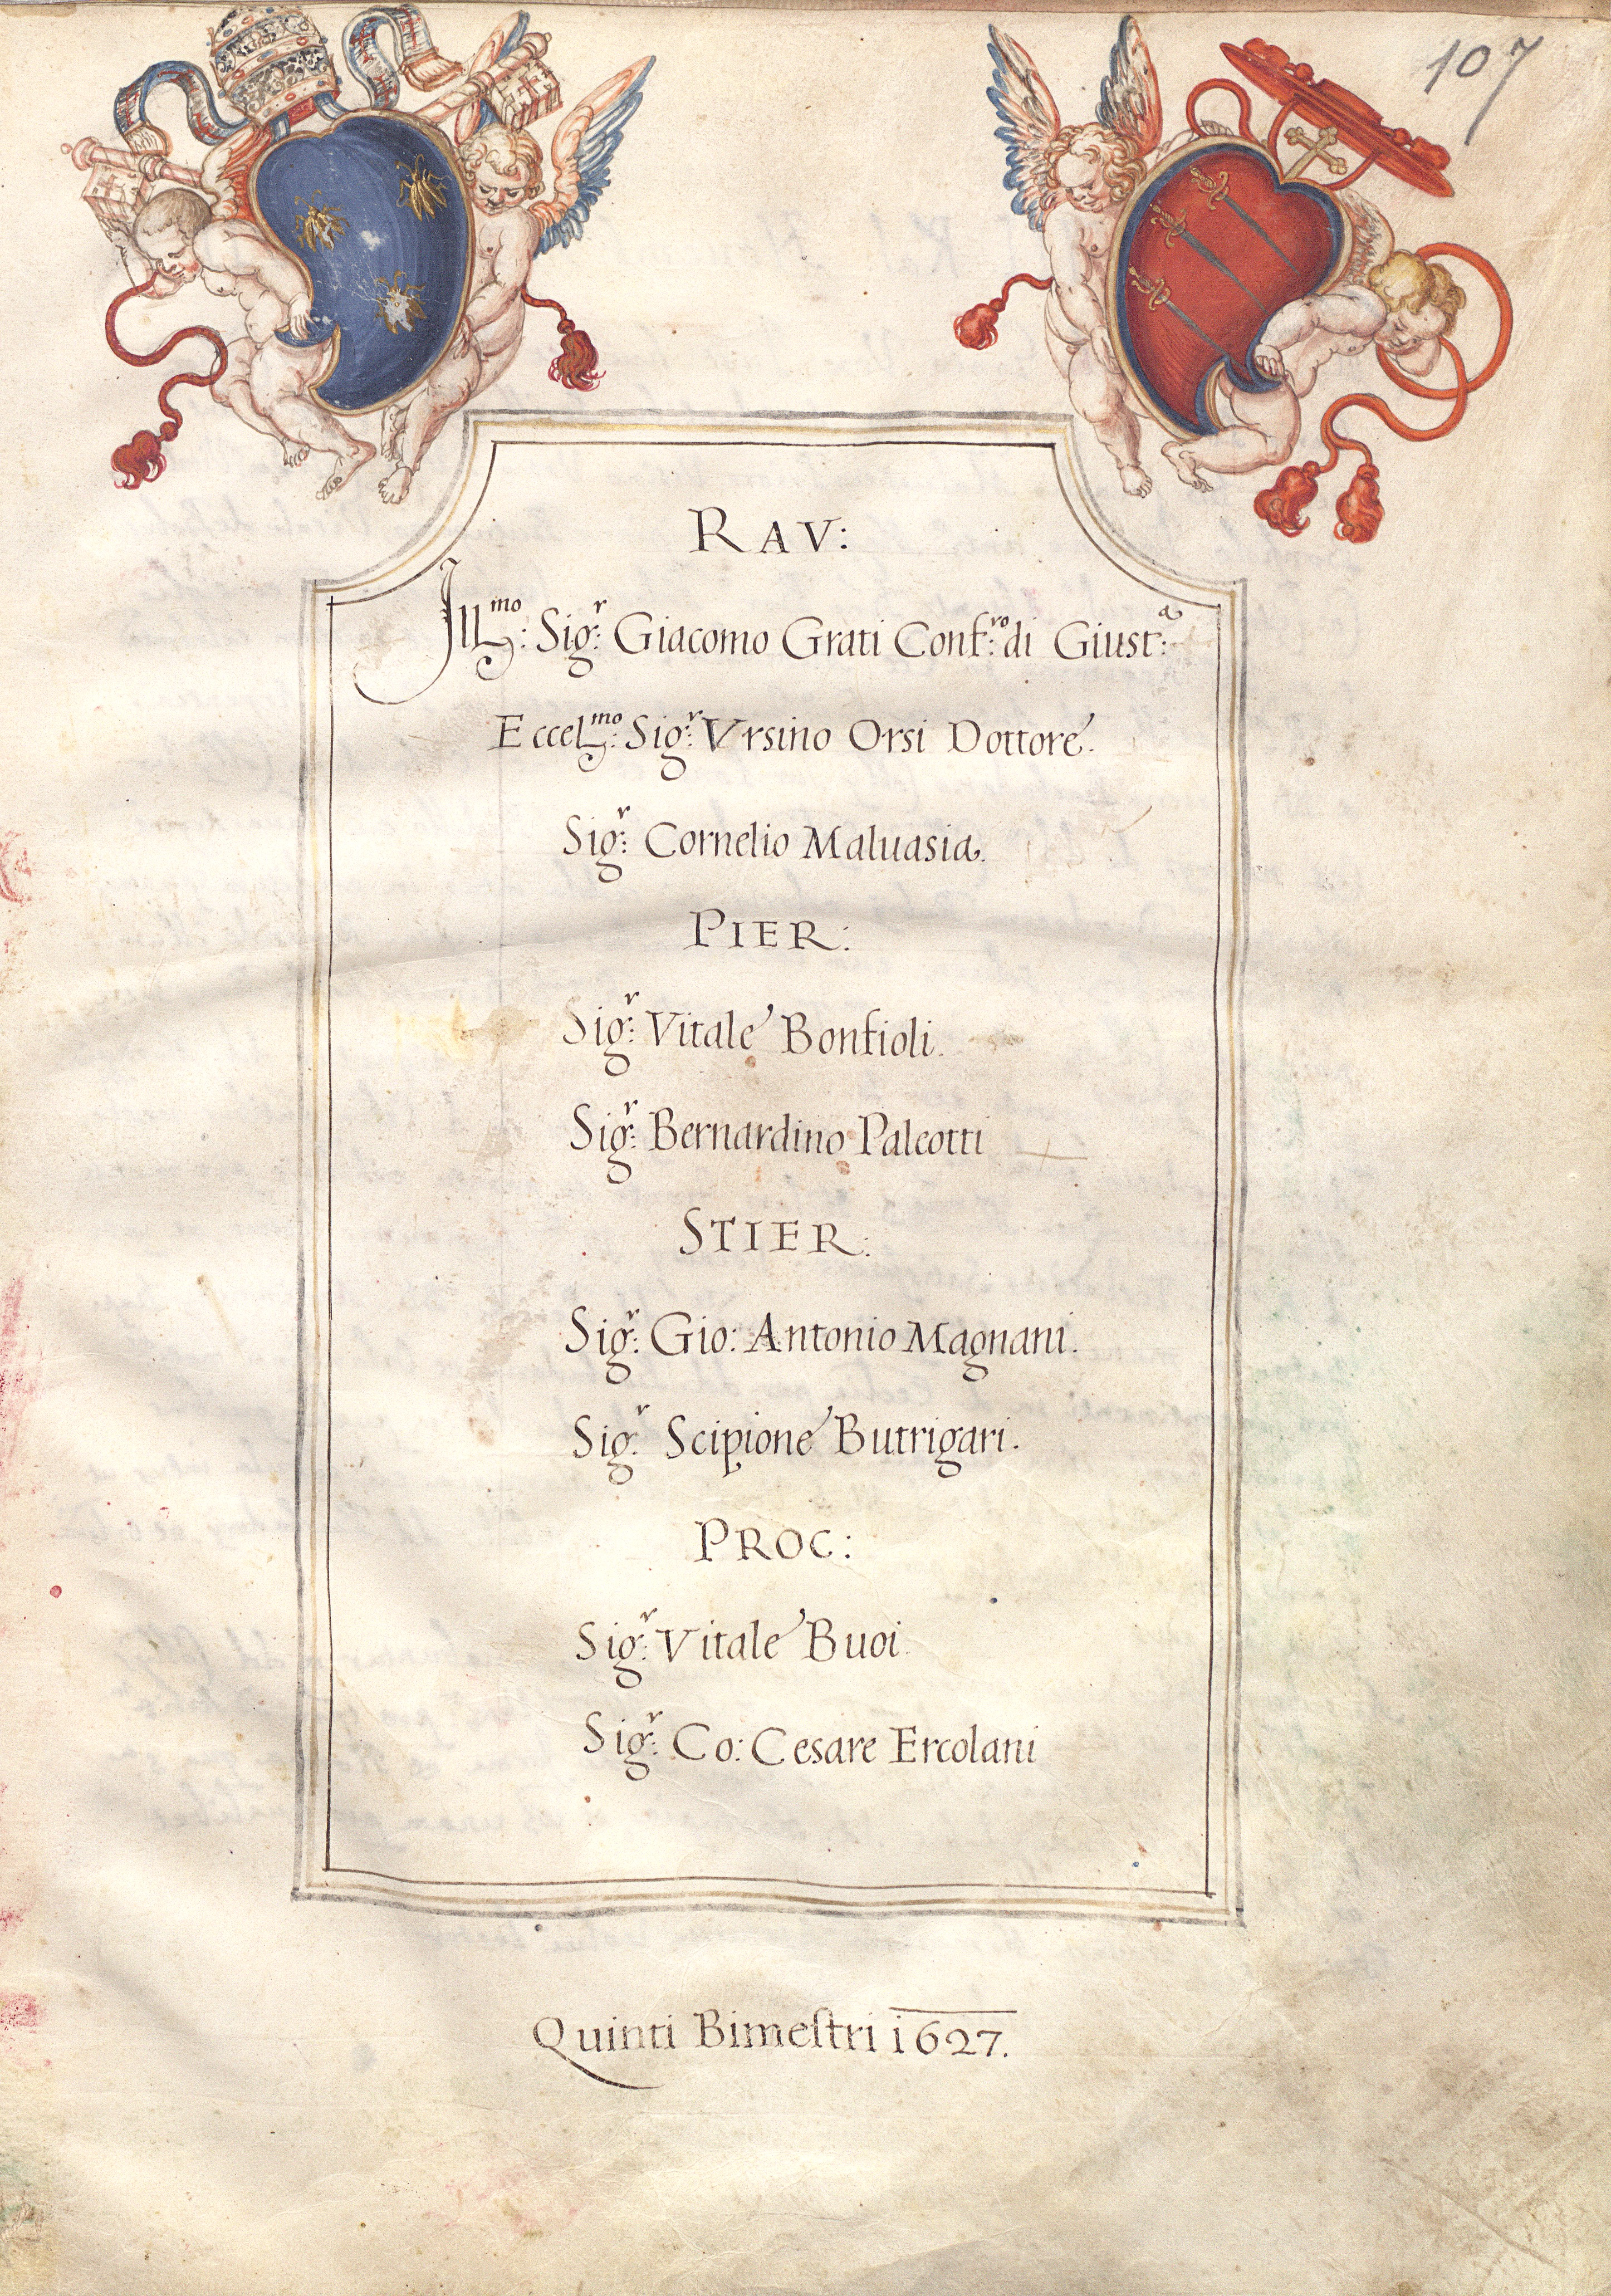 107
RAV:
Ill.mo: Sig.r: Giacomo Grati Conf.ro: di Giust.a:
Eccel.mo: Sig.r: Vrsino Orsi Dottore.
Sig.r: Cornelio Maluasia.
PIER:
Sig.r: Vitale Bonfioli.
Sig.r: Bernardino Paleotti
STIER:
Sig.r: Gio: Antonio Magnani.
Sig.r: Scipione Butrigari.
PROC:
Sig.r: Vitale Buoi.
Sig.r: Co: Cesare Ercolani
Quinti Bimeſtri 1627.